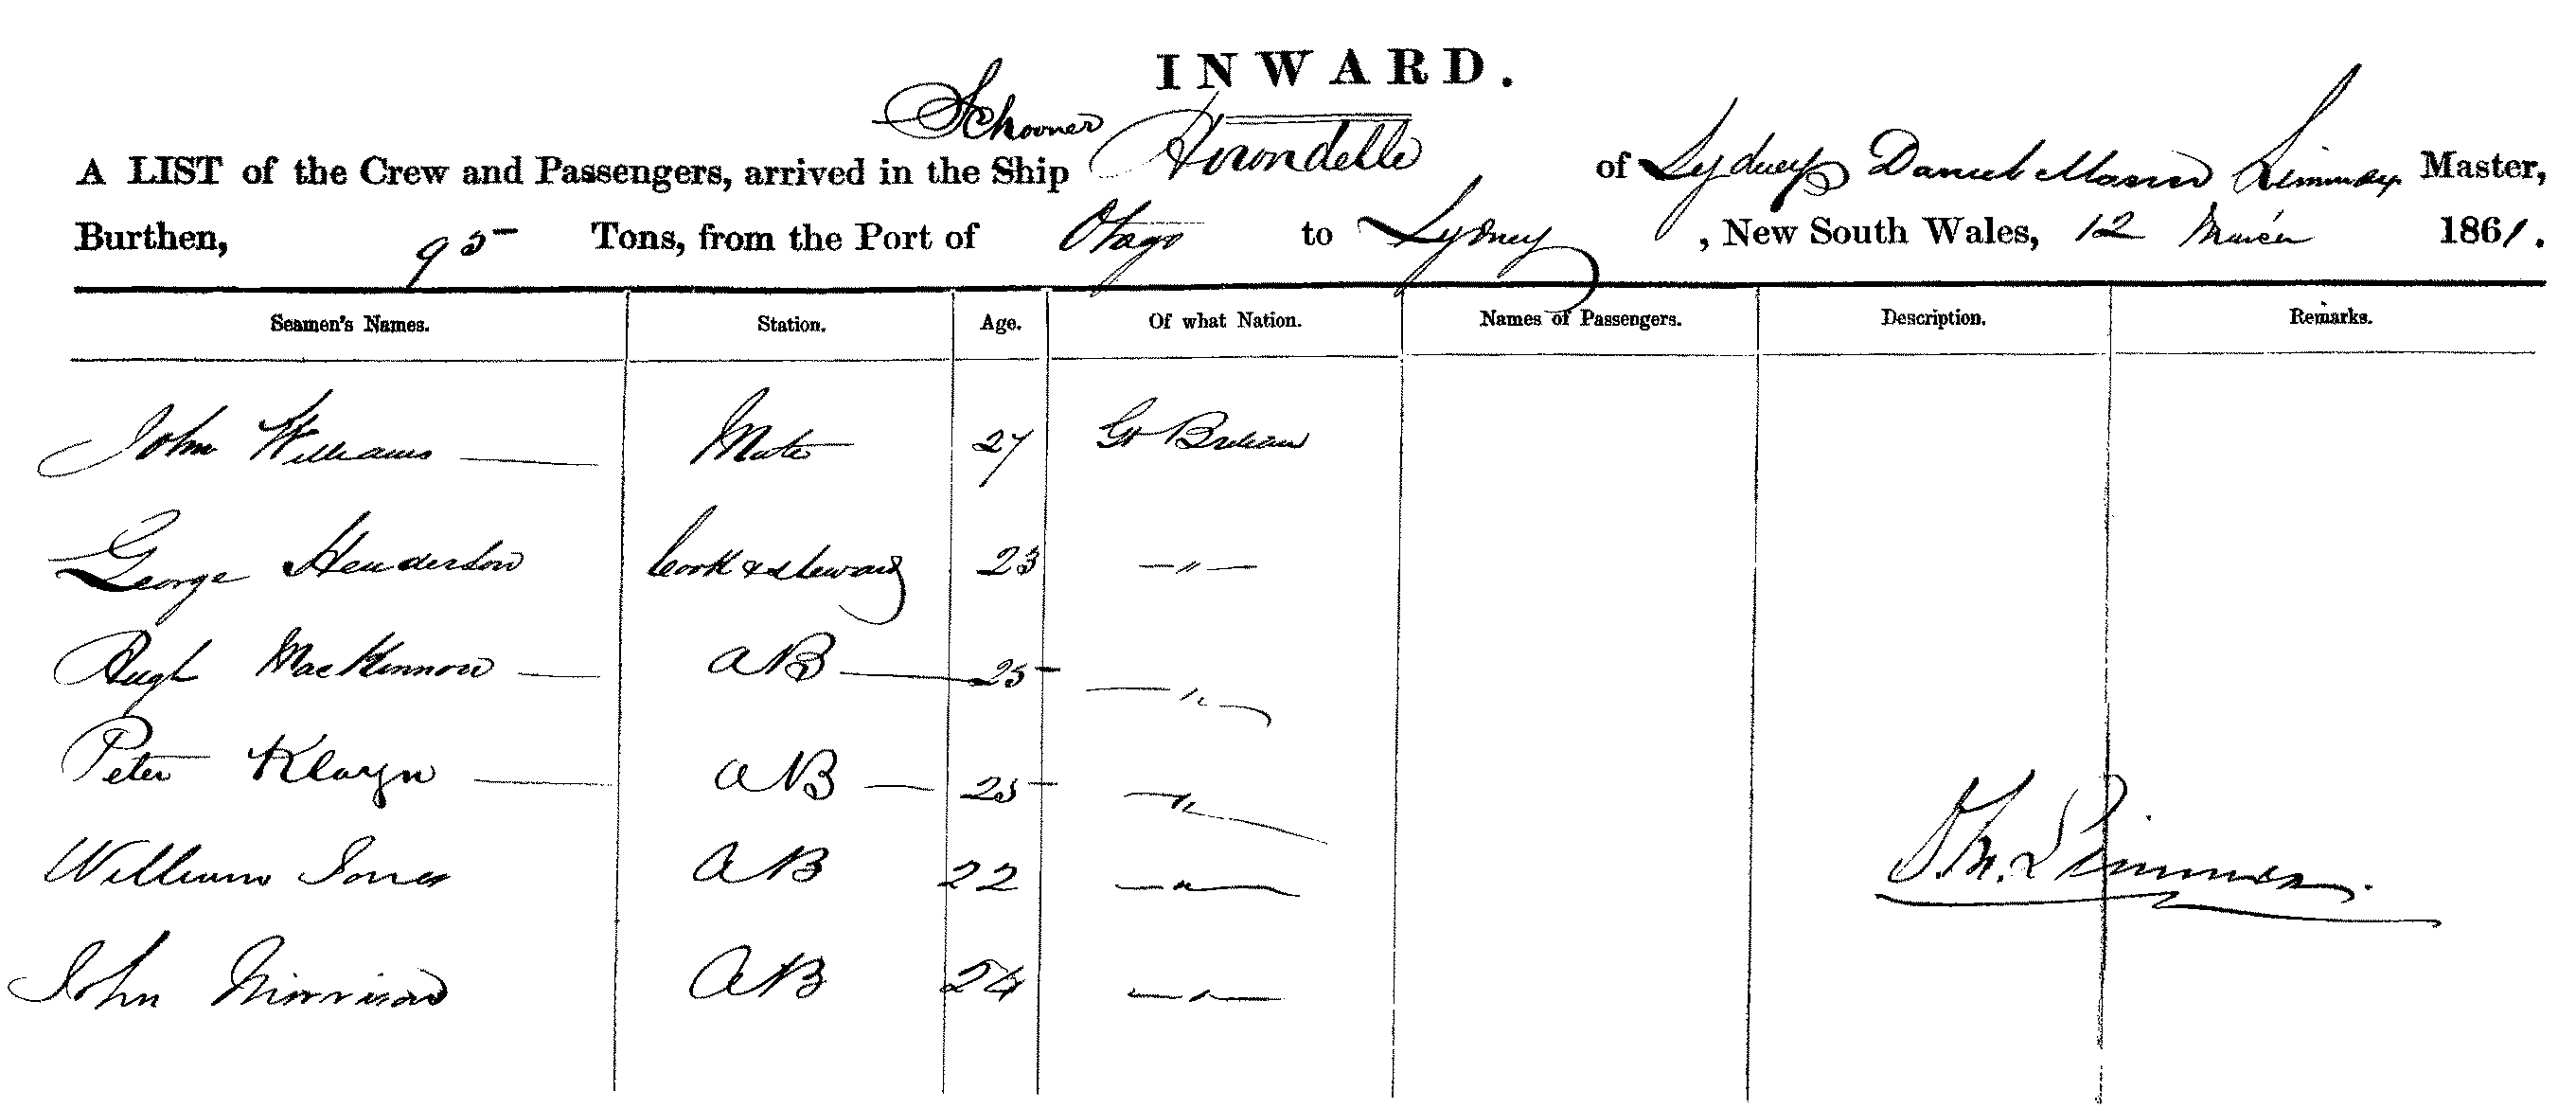 INWARD.
Schooner
A LIST of the Crew and Passengers, arrived in the Ship Hirondelle of Sydney Daniel Mason Limmex Master,
Burthen, 95 Tons, from the Port of Otago to Sydney, New South Wales, 12 March 1861.
Seamen's Names. Station. Age. Of what Nation. Names of Passengers. Description. Remarks.
John Williams Mate 27 Gt Britain
George Henderson Cook & steward 23 "
Hugh MacKinnon AB 25 "
Peter Klaryn AB 25 "
William Jones AB 22 "
D.M. Limmex.
John Morrison AB 24 "